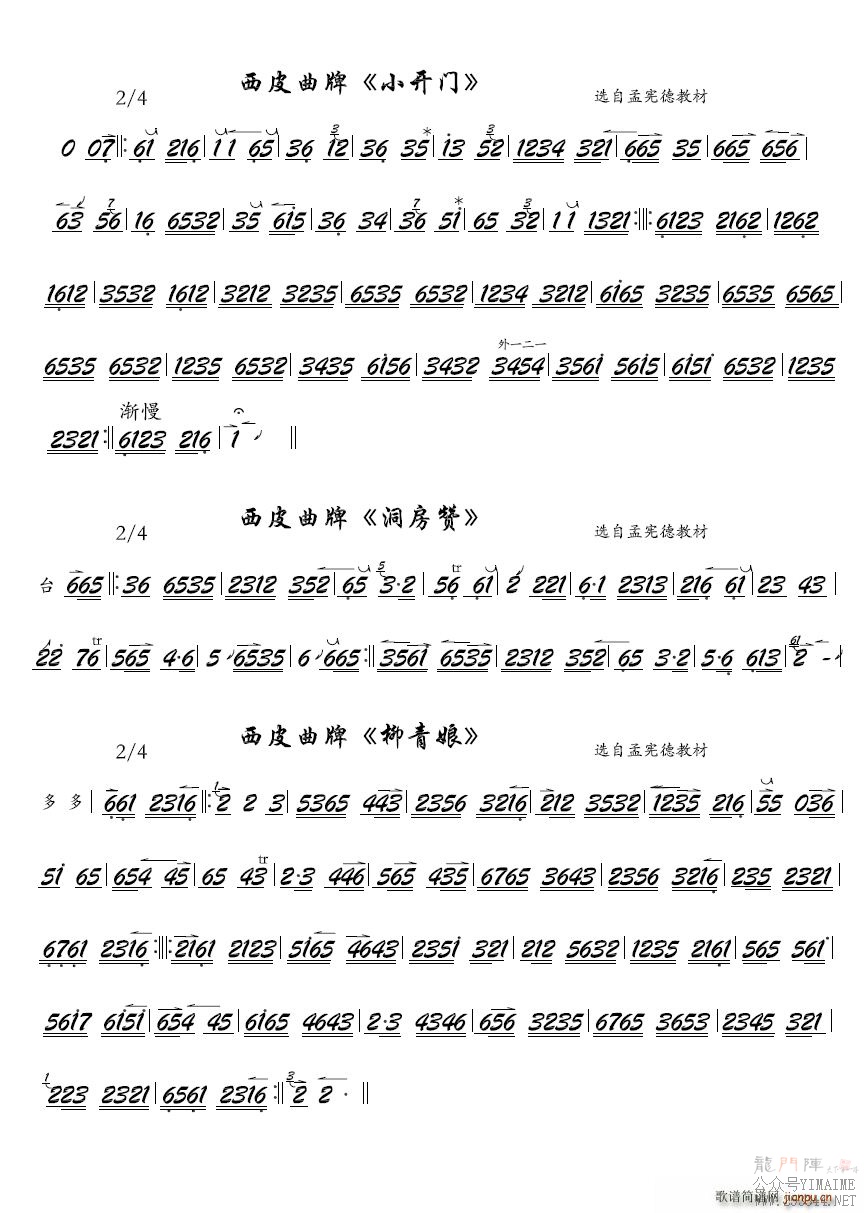 西皮曲牌《小开门》
2/4 选自孟宪德教材
0 07‖:61 216|11 65|36 12|36 35|i3 52|1234 321|665 35|665 656|
63 56|16 6532|35 6i5|36 34|36 5i|65 32|11 1321:‖:6123 2162|1262
1612|3532 1612|3212 3235|6535 6532|1234 3212|6i65 3235|6535 6565|
6535 6532|1235 6532|3435 6i56|3432 3454|356i 56i5|6i5i 6532|1235
外一二一
渐慢
2321:‖6123 216|1 ‖
西皮曲牌《洞房赞》
2/4 选自孟宪德教材
台 665‖:36 6535|2312 352|65 3·2|56 61|2 221|6·1 2313|216 61|23 43|
22 76|565 4·6|5 6535|6 665:‖3561 6535|2312 352|65 3·2|5·6 613|2 -
西皮曲牌《柳青娘》
2/4 选自孟宪德教材
多多|661 2316‖:2 2 3|5365 443|2356 3216|212 3532|1235 216|55 036|
5i 65|654 45|65 43|2·3 446|565 435|6765 3643|2356 3216|235 2321|
6761 2316:‖:2161 2123|5i65 4643|235i 321|212 5632|1235 2161|565 561·|
56i7 6i5i|654 45|6i65 4643|2·3 4346|656 3235|6765 3653|2345 321|
223 2321|6561 2316:‖2 2 ·‖
龍門陣
公众号YIMAIME
歌谱简谱网 jianpu.cn